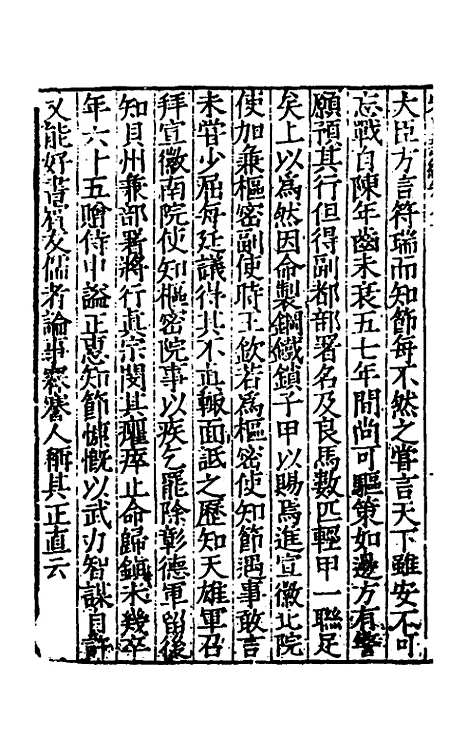 大臣方言符瑞而知節每不然之甞言天下雖安不可
忘戰自陳年齒未衰五七年間尚可驅策如邊方有警
願預其行但得副都部署名及良馬數匹輕甲一聯足
矣上以為然因命製鋼鐵鎖子甲以賜焉進宣徽北院
使加兼樞密副使時王欽若為樞密使知節遇事敢言
未甞少屈每廷議得其不直輙面詆之歷知天雄軍召
拜宣徽南院使知樞密院事以疾乞罷除彰德軍留後
知貝州兼部署將行真宗閔其癯瘁止命歸鎮未幾卒
年六十五贈侍中謚正惠知節慷慨以武力智謀自許
又能好書賓友儒者論事謇謇人稱其正直云